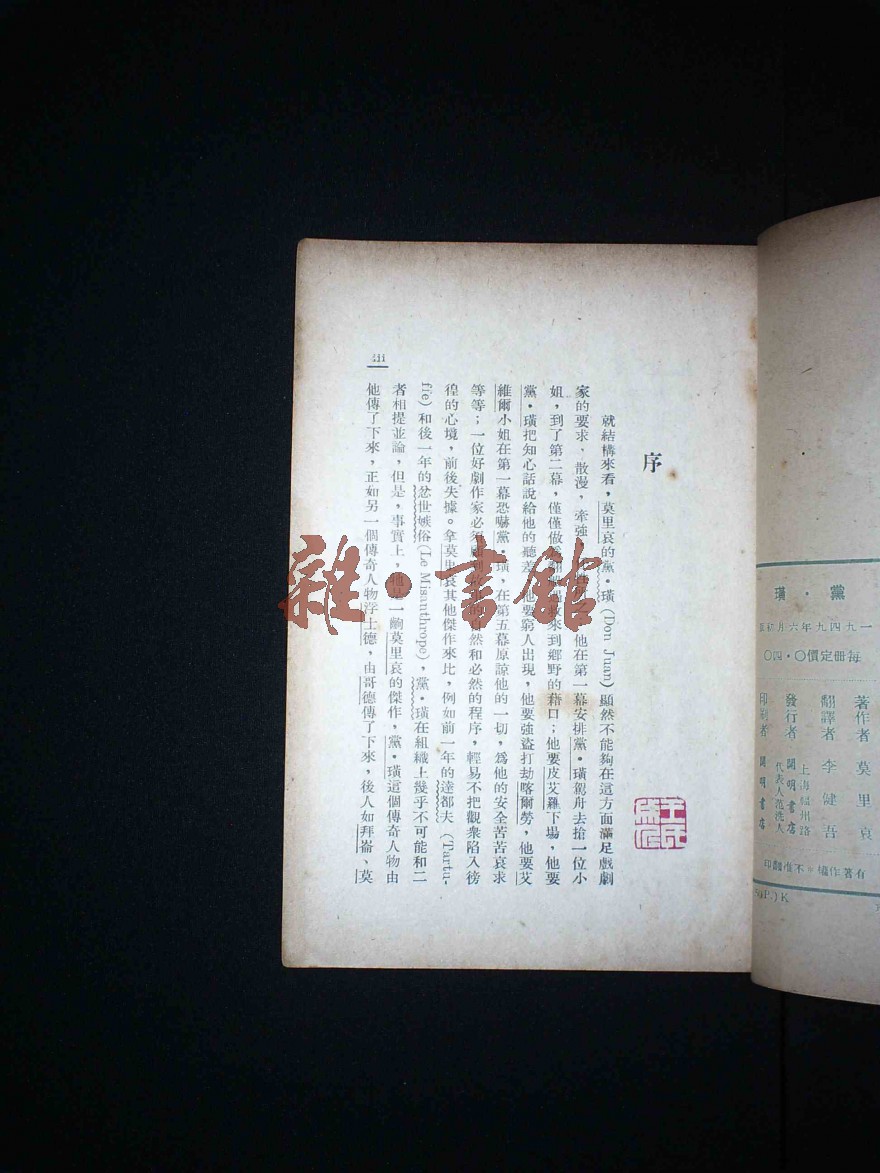 黨・璜
一九四九年六月初版
每冊定價〇・四〇
著作者 莫里哀
翻譯者 李健吾
上海福州路
發行者 開明書店
代表人范洗人
印刷者 開明書店
有著作權＊不准翻印
(P.) K
序
就結構來看，莫里哀的黨・璜 (Don Juan) 顯然不能夠在這方面滿足戲劇
家的要求、散漫，牽強 他在第一幕安排黨・璜駕舟去搶一位小
姐，到了第二幕，僅僅做為 救來到鄉野的藉口；他要皮艾羅下場，他要
黨・璜把知心話說給他的聽差，他要窮人出現，他要強盜打劫喀爾勞，他要艾
維爾小姐在第一幕恐嚇黨・璜，在第五幕原諒他的一切，爲他的安全苦苦哀求
等等；一位好劇作家必須 自然和必然的程序，輕易不把觀衆陷入徬
徨的心境，前後失據。拿莫里哀其他傑作來比，例如前一年的達都夫 (Tartu-
ffe) 和後一年的忿世嫉俗 (Le Misanthrope)，黨・璜在組織上幾乎不可能和二
者相提並論，但是，事實上，他是一齣莫里哀的傑作，黨・璜這個傳奇人物由
他傳了下來，正如另一個傳奇人物浮士德，由哥德傳了下來，後人如拜崙、莫
iii
雜・書館